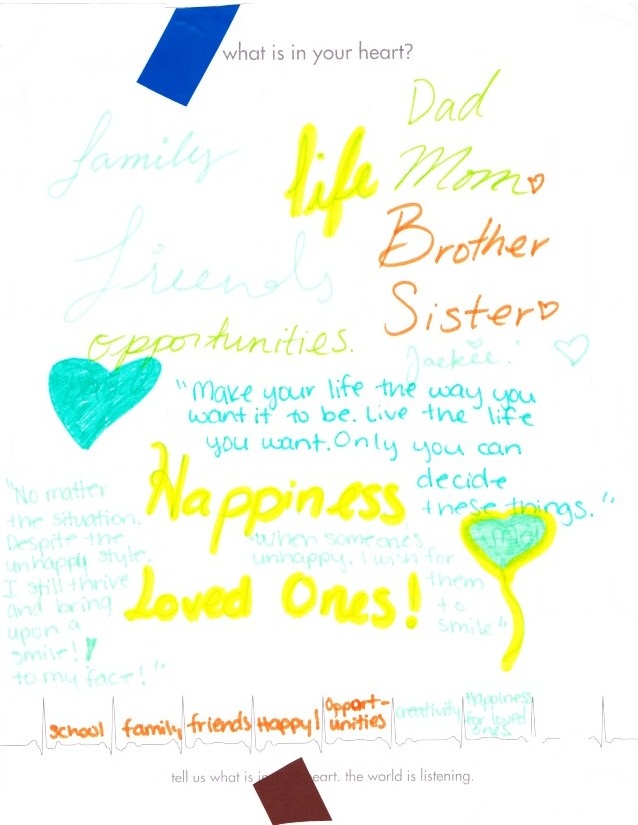 what is in your heart?
Dad
family
life
Mom
Brother
Friends
Sister
opportunities.
Jackie!
"Make your life the way you
want it to be. Live the life
you want. Only you can
decide
these things."
Happiness
"No matter
the situation.
Despite the
unhappy style.
I still thrive
and bring
upon a
smile!
to my face!"
"When someone's
unhappy. I wish for
them
to
smile"
Loved Ones!
school
family
friends
Happy!
Opport-
unities
creativity
Happiness
for loved
ones
tell us what is in eart. the world is listening.